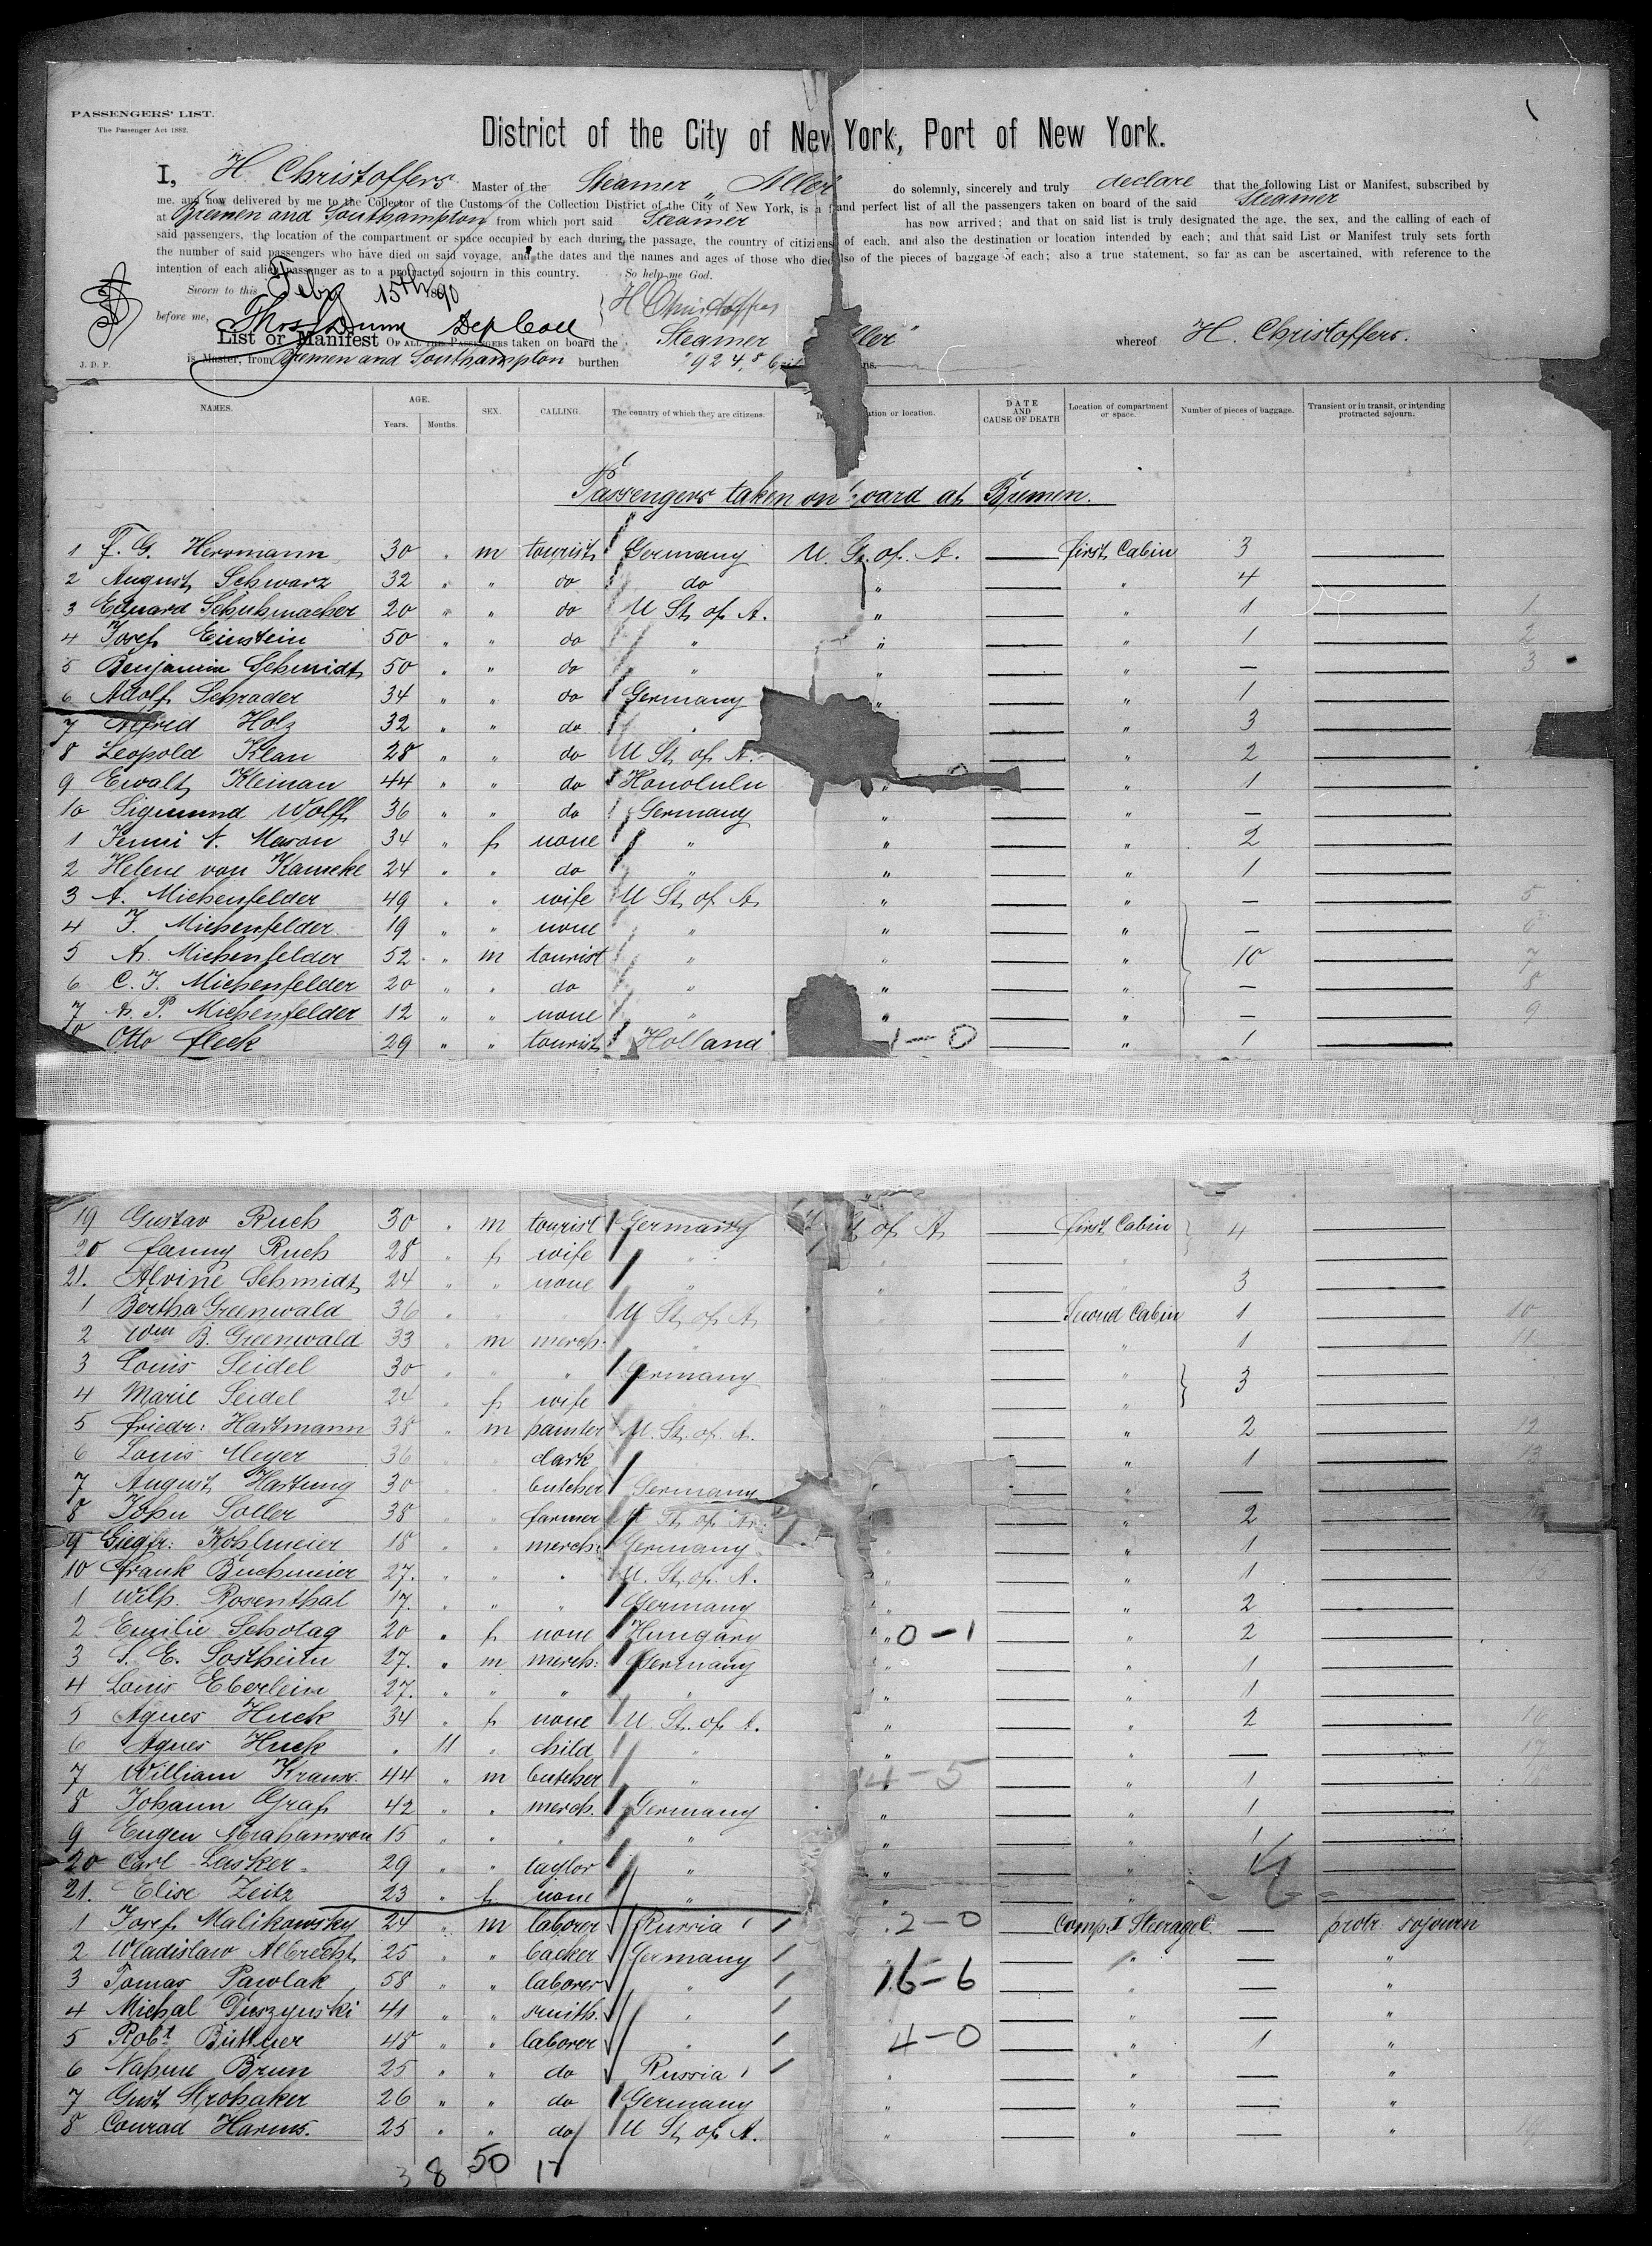 PASSENGERS' LIST.
The Passenger Act 1882.
District of the City of New York, Port of New York.
I, H Christoffers Master of the Steamer "Aller" do solemnly, sincerely and truly declare that the following List or Manifest, subscribed by
me, and now delivered by me to the Collector of the Customs of the Collection District of the City of New York, is a f and perfect list of all the passengers taken on board of the said Steamer
at Bremen and Southampton from which port said Steamer has now arrived; and that on said list is truly designated the age, the sex, and the calling of each of
said passengers, the location of the compartment or space occupied by each during the passage, the country of citizens of each, and also the destination or location intended by each; and that said List or Manifest truly sets forth
the number of said passengers who have died on said voyage, and the dates and the names and ages of those who died also of the pieces of baggage of each; also a true statement, so far as can be ascertained, with reference to the
intention of each alien passenger as to a protracted sojourn in this country. So help me God.
Sworn to this Feby 15th 1890
H Christoffers
before me, Thos Dunn Dep Coll
List or Manifest OF ALL THE PASSENGERS taken on board the Steamer "Aller" whereof H. Christoffers.
is Master, from Bremen and Southampton burthen tons.
J. D. P.
NAMES. AGE. Years. Months. SEX. CALLING. The country of which they are citizens. Intended destination or location. DATE AND CAUSE OF DEATH Location of compartment or space. Number of pieces of baggage. Transient or in transit, or intending protracted sojourn.
Passengers taken on board at Bremen.
1 F. G. Herrmann 30 " m tourist Germany U. St. of A. — first Cabin 3 —
2 August Schwarz 32 " " do do " — " 4 —
3 Eduard Schuhmacher 20 " " do U St. of A. " — " 1 — 1
4 Josef Einstein 50 " " do " " — " 1 — 2
5 Benjamin Schmidt 50 " " do " " — " — — 3
6 Adolf Schrader 34 " " do Germany " — " 1 —
7 Alfred Holz 32 " " do " — " 3 —
8 Leopold Klau 28 " " do U St. of A. — " 2 —
9 Ewald Kleinau 44 " " do Honolulu " — " 1 —
10 Sigmund Wolff 36 " " do Germany " — " — —
1 Jenni A. Mason 34 " f none " " — " 2 —
2 Helene von Kameke 24 " " do " " — " 1 —
3 A. Michenfelder 49 " " wife U St. of A. " — " — — 5
4 J. Michenfelder 19 " " none " " — " — — 6
5 A. Michenfelder 52 " m tourist " " — " 10 — 7
6 C. J. Michenfelder 20 " " do " " — " — — 8
7 A. P. Michenfelder 12 " " none " " — " — — 9
Otto Fleck 29 " " tourist Holland 1-0 — " 1 —
19 Gustav Ruch 30 " m tourist Germany U St of A — first Cabin 4 —
20 Fanny Ruch 28 " f wife " " — " —
21. Alvine Schmidt 24 " " none " " — " 3 —
1 Bertha Greenwald 36 " U St. of A. — Second Cabin 1 — 10
2 Wm B. Greenwald 33 " m merch. " — " 1 — 11
3 Louis Seidel 30 " " " Germany " — " 3 —
4 Marie Seidel 24 " f wife " — " —
5 Friedr: Hartmann 38 " m painter U. St. of A. — " 2 — 12
6 Louis Meyer 36 " " clark " — " 1 — 13
7 August Hartung 30 " " butcher Germany " — " — —
8 John Soller 38 " " farmer U St. of A. — " 2 —
9 Siegfr: Kohlmeier 18 " " merch. Germany — " 1 —
10 Frank Buchmeier 27. " " " U. St. of. A. " — " 1 —
1 Wilh. Rosenthal 17. " " " Germany " — " 2 —
2 Emilie Scholag 20 " f none Hungary " 0-1 — " 2 —
3 S. E. Sostheim 27. " m merch: Germany " — " 1 —
4 Louis Eberlein 27. " " " " " — " 1 —
5 Agnes Huck 34 " f none U. St. of A. " — " 2 — 16
6 Agnes Huck . 11 " child " " — " — — 17
7 William Kraus 44 " m butcher " 4-5 — " 1 —
8 Johann Graf 42 " " merch. Germany " — " 1 —
9 Eugen Abrahamson 15 " " " " " — " 1 —
20 Carl Lasker 29 " " taylor " " — " 1 —
21. Elise Zeitz 23 " f none " " — " —
1 Josef Malikowsky 24 " m laborer Russia 2-0 — Comp. I Steerage — protr. sojourn
2 Wladislaw Albrecht 25 " " backer Germany — " — "
3 Tomas Pawlak 58 " " laborer " 16-6 — " — "
4 Michal Duszynski 41 " " smith. " — " — "
5 Robt Büttner 48 " " laborer " 4-0 — " 1 "
6 Nahum Brun 25 " " do Russia " — " — "
7 Gust Strohaker 26 " " do Germany " — " — "
8 Conrad Harms. 25 " " do U St. of A. " — " — "
38 50 17